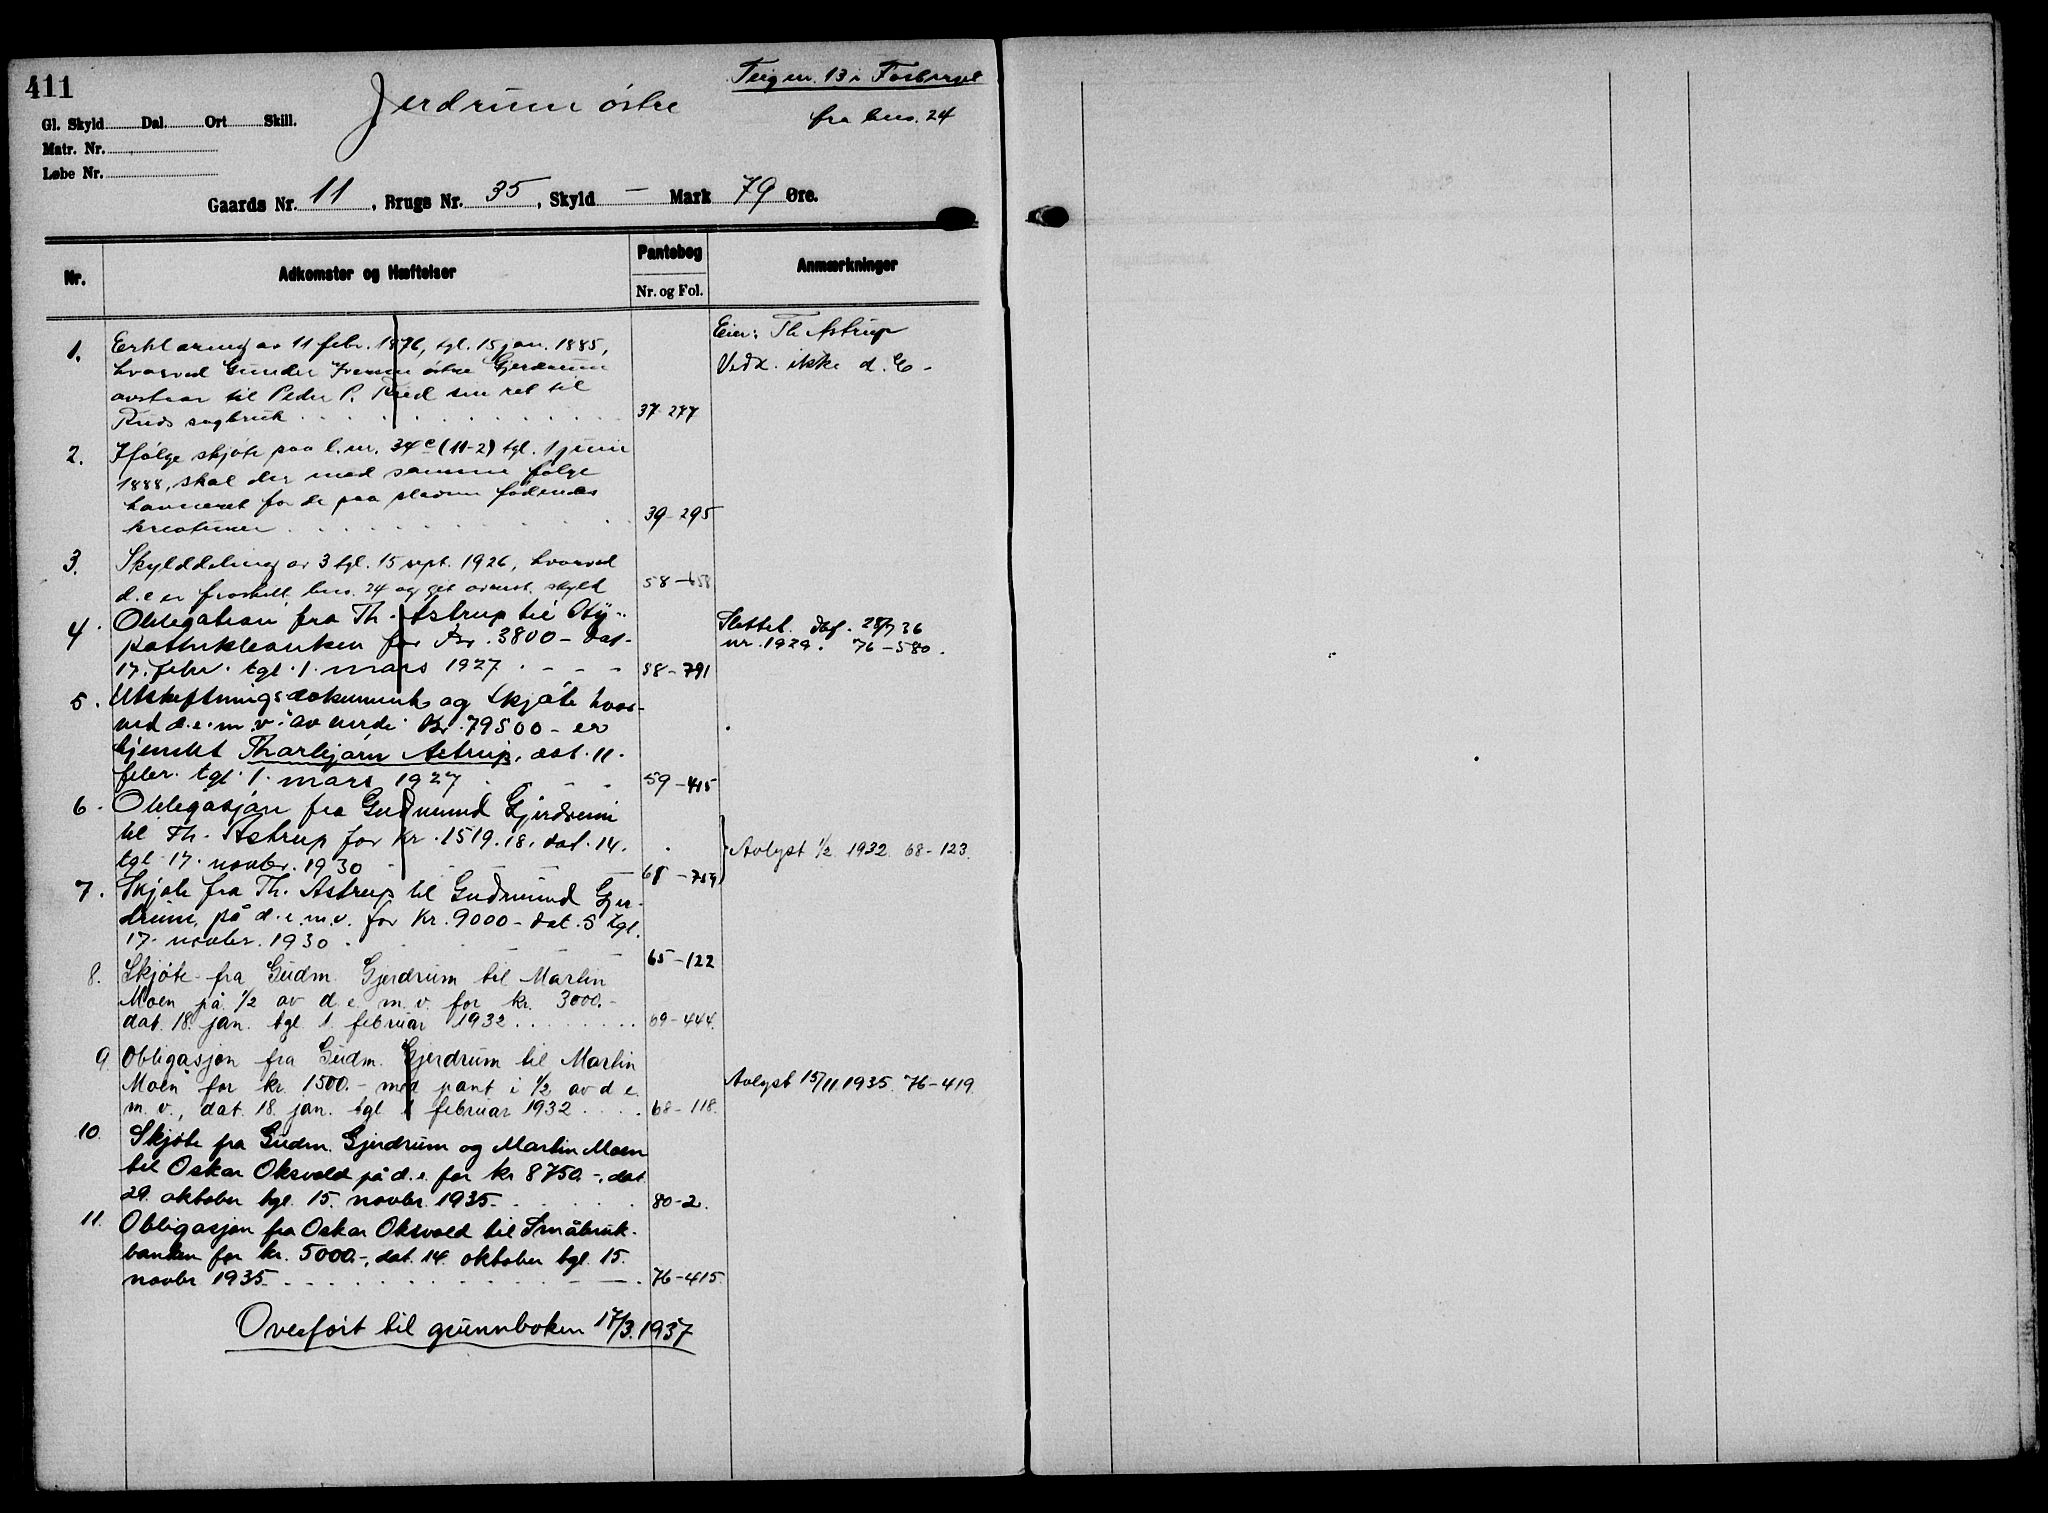 411
Jerdrum østre
Teig nr. 13 i
fra bno. 24
Gl. Skyld Dal. Ort Skill.
Matr. Nr.
Løbe Nr.
Gaards Nr. 11, Brugs Nr. 35, Skyld — Mark 79 Øre.
Nr. Adkomster og Hæftelser Pantebog Anmærkninger
Nr. og Fol.
1. Erklæring av 11 febr. 1876, tgl. 15 jan. 1885,
hvorved Gunder Iversen østre Gjerdrum
avstaar til Peder P. Rud sin ret til
Ruds sagbruk 37-277
Eier: Th Astrup
Vedk. ikke d. E.
2. Ifølge skjøte paa l.nr. 34c (11-2) tgl. 1 juni
1888, skal der med samme følge
havneret for de paa pladsen fødendes
kreaturer 39-295
3. Skylddeling av 3 tgl. 15 sept. 1926, hvorved
d.e er fraskilt bno. 24 og git ovenst. skyld 58-658
4. Obligation fra Th. Astrup til Hy-
pothekbanken for Kr. 3800 - dat.
17. febr. tgl. 1. mars 1927 58-791
Slettet. Dbf. 28/7 36
nr. 1929. 76-580.
5. Utskiftningsdokument og skjøte hvor-
ved d.e.m.v. av verdi Kr. 79500 - er
hjemlet Thorbjørn Astrup, dat. 11.
febr. tgl. 1. mars 1927 59-415
6. Obligasjon fra Gudmund Gjerdrum
til Th. Astrup for Kr. 1519.18, dat. 14.
tgl. 17. novbr. 1930
Avlyst 1/2 1932 68-123.
7. Skjøte fra Th. Astrup til Gudmund Gjer-
drum, på d.e.m.v. for Kr. 9000 - dat. 5 tgl.
17. novbr. 1930 65-122
8. Skjøte fra Gudm. Gjerdrum til Martin
Moen på 1/2 av d.e. m.v. for kr. 3000.-
dat. 18. jan. tgl 1 februar 1932 69-444.
9. Obligasjon fra Gudm. Gjerdrum til Martin
Moen for kr. 1500.- med pant i 1/2 av d e.
m.v., dat. 18. jan. tgl 1 februar 1932 68-118.
Avlyst 15/11.1935. 76-419.
10. Skjøte fra Gudm. Gjerdrum og Martin Moen
til Oskar Oksvold på d.e. for kr 8750.-, dat.
29. oktober tgl. 15. novbr. 1935. 80-2.
11. Obligasjon fra Oskar Oksvold til Småbruk-
banken for kr. 5000.-, dat. 14. oktober tgl. 15.
novbr 1935. 76-415.
Overført til grunnboken 17/3.1937